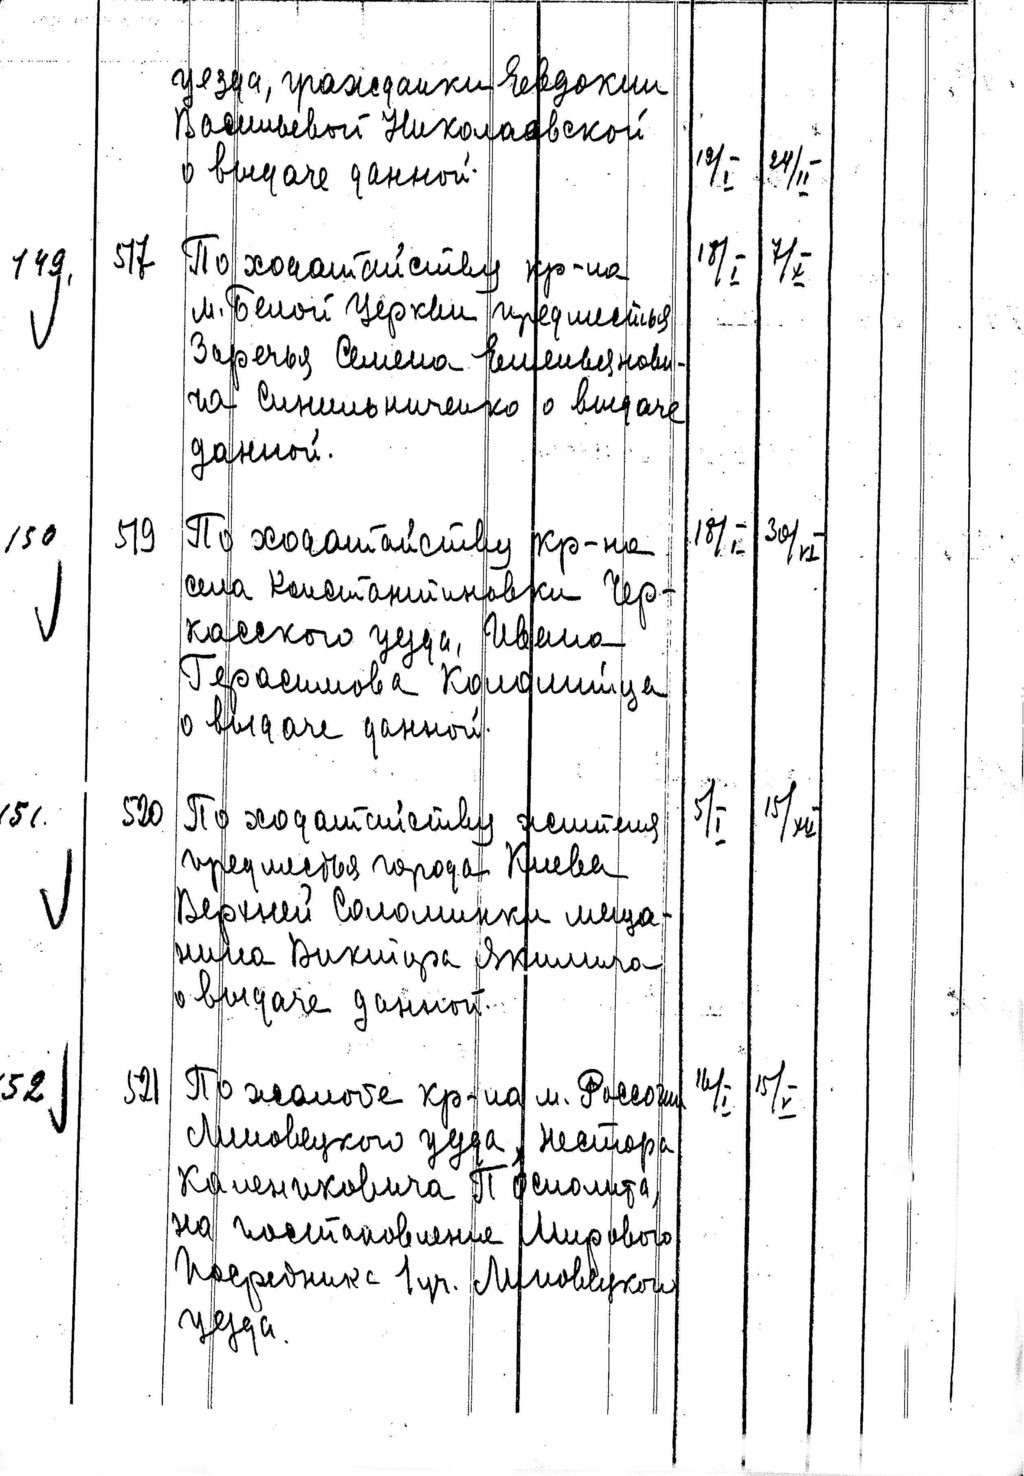 уезда, гражданки Евдокии
Васильевой Николаевской
о выдаче данной. 19/I 24/II
149. 517 По ходатайству кр-на 18/I 7/X
м. Белой Церкви предместья
Заречья Семена Емельянови-
ча Синельниченко о выдаче
данной.
150 519 По ходатайству кр-на 18/I 30/VI
села Константиновки Чер-
касского уезда, Ивана
Герасимова Коломийца
о выдаче данной.
151. 520 По ходатайству жителя 5/I 15/XII
предместья города Киева
Верхней Соломинки меща-
нина Виктора Якимича
о выдаче данной.
152 521 По жалобе кр-на м. Россоши 16/I 15/V
Липовецкого уезда, Нестора
Калениковича Посполита,
на постановление Мирового
Посредника 1 уч. Липовецкого
уезда.